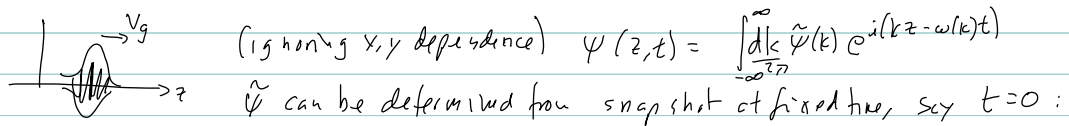 Vg
(ignoring x,y dependence) ψ(z,t) = ∫_{-∞}^{∞} dk/2π ψ̃(k) e^{i(kz-ω(k)t)}
z
ψ̃ can be determined from snapshot at fixed time, say t=0 :